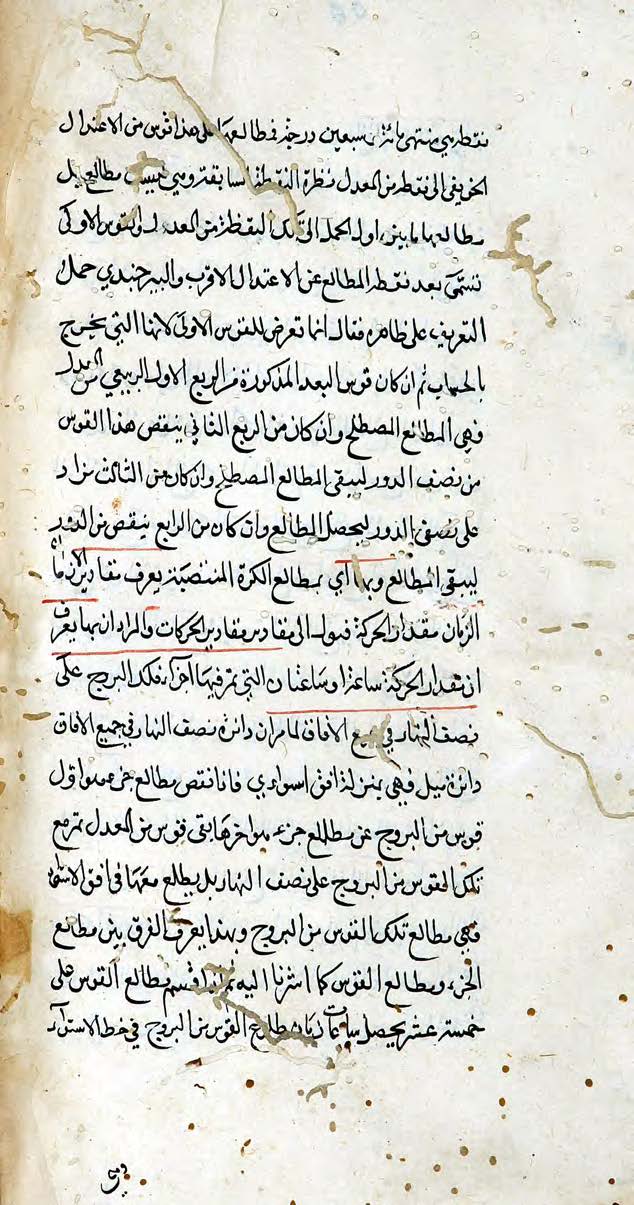 نقطة هي منتهى مائتان سبعين درجة فطالعها على هذا قوس من الاعتدال
الخريفي الى نقطة من المعدل نظرة النقطة مطالع بل
مطالعها ما بين اول الحمل الى تلك النقطة من المعدل والقوس الاولى
تسمى بعد نقطة المطالع عن الاعتدال الاقرب والبيرجندي حمل
التعريف على ظاهره فقال انما تعرض للقوس الاولى لانها التي يخرج
بالحساب ثم ان كان قوس البعد المذكورة من الربع الاول الربيعي من المعدل
فهي المطالع المصطلح وان كان من الربع الثاني ينقص هذا القوس
من نصف الدور ليبقى المطالع المصطلح وان كان من الثالث يزاد
على نصف الدور ليحصل المطالع وان كان من الرابع ينقص من الدور
ليبقى المطالع وبها اي بمطالع الكرة المنتصبة يعرف مقادير الازمان
الزمان مقدار الحركة فيول الى مقادير مقادير الحركات والمراد ان بها يعرف
ان مقدار الحركة ساعة او ساعتان التي تمر فيها اجزاء فلك البروج على
نصف النهار في جميع الافاق لما مر ان دائرة نصف النهار في جميع الافاق
دائرة ميل فهي بمنزلة افق استوائي فاذا نقص مطالع جزء هو اول
قوس من البروج عن مطالع جزء هو اخرها بقي قوس من المعدل تمر مع
تلك القوس من البروج على نصف النهار بل يطلع معها في افق الاستواء
فهي مطالع تلك القوس من البروج وبهذا يعرف الفرق بين مطالع
الجزء ومطالع القوس كما اشرنا اليه ثم اذا قسم مطالع القوس على
خمسة عشر يحصل ساعات زمان طلوع القوس من البروج في خط الاستواء